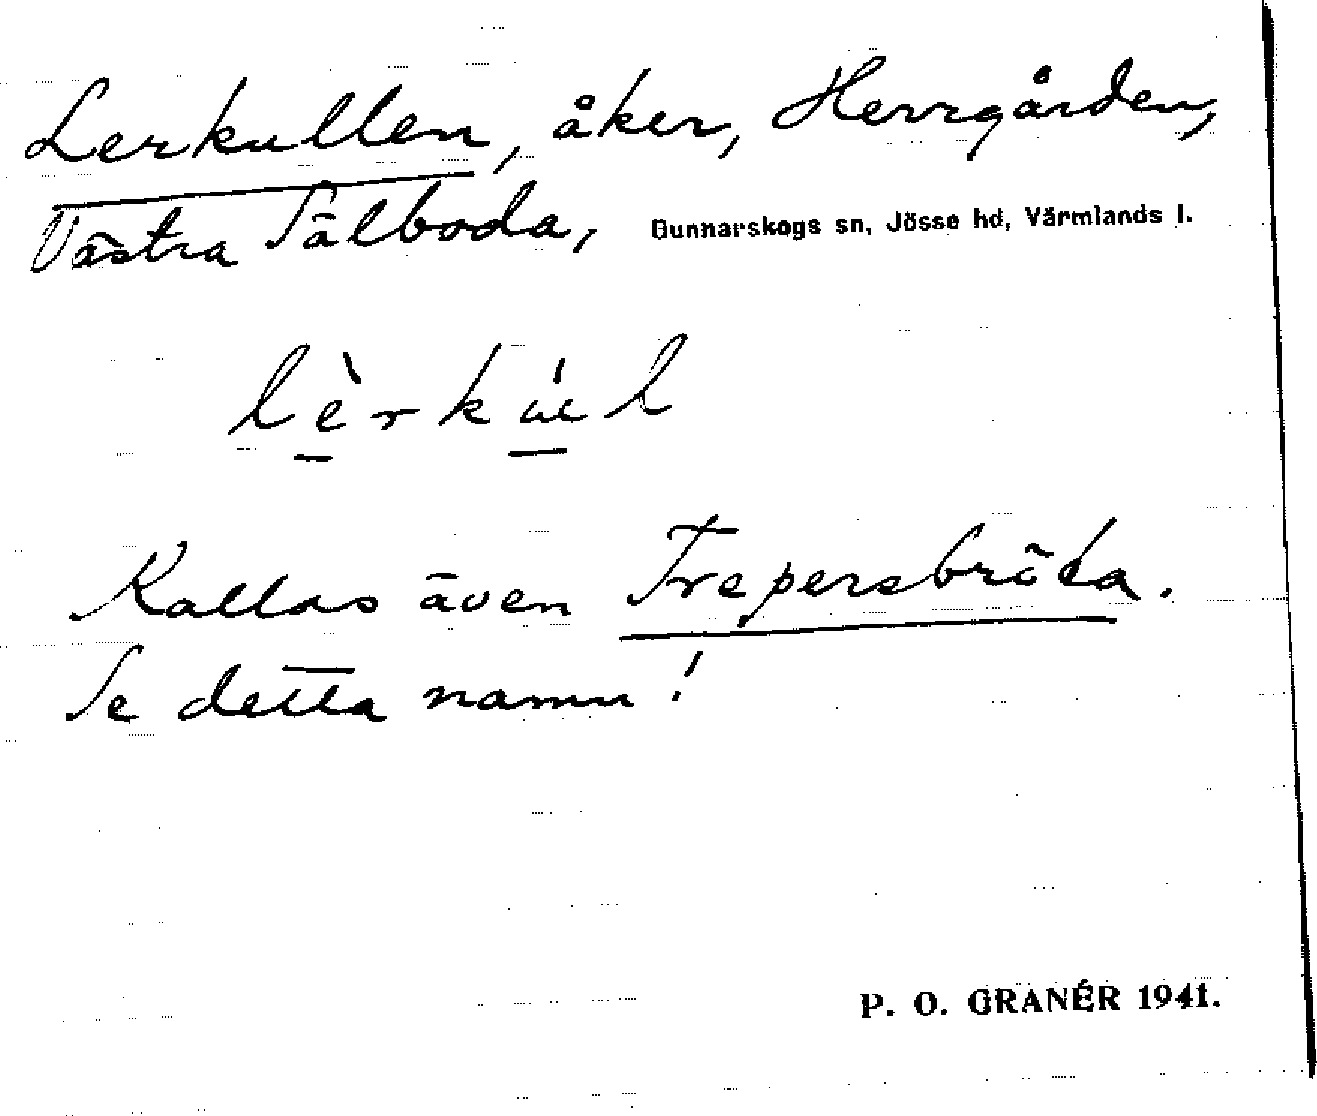 Lerkullen, åker, Herrgården,
Västra Sälboda, Gunnarskogs sn, Jösse hd, Värmlands l.
lèrkúl
Kallas även Trepersbröta.
Se detta namn!
P. O. GRANÉR 1941.